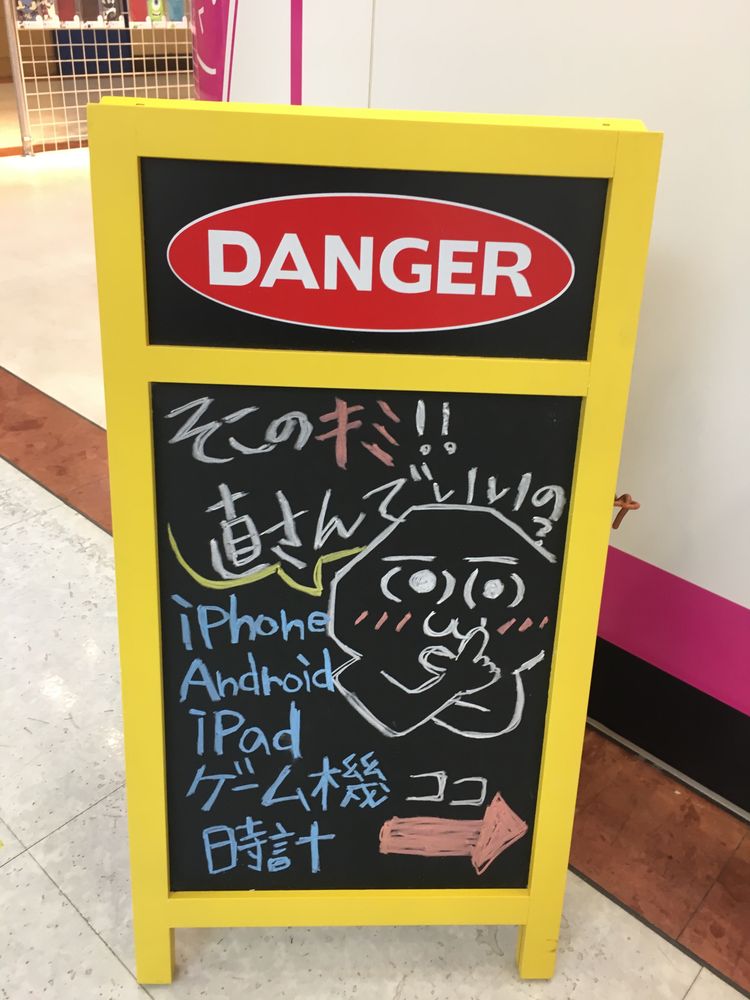 DANGER
そこのキミ!!
直さんでいいの?
iPhone
Android
iPad
ゲーム機
ココ
時計